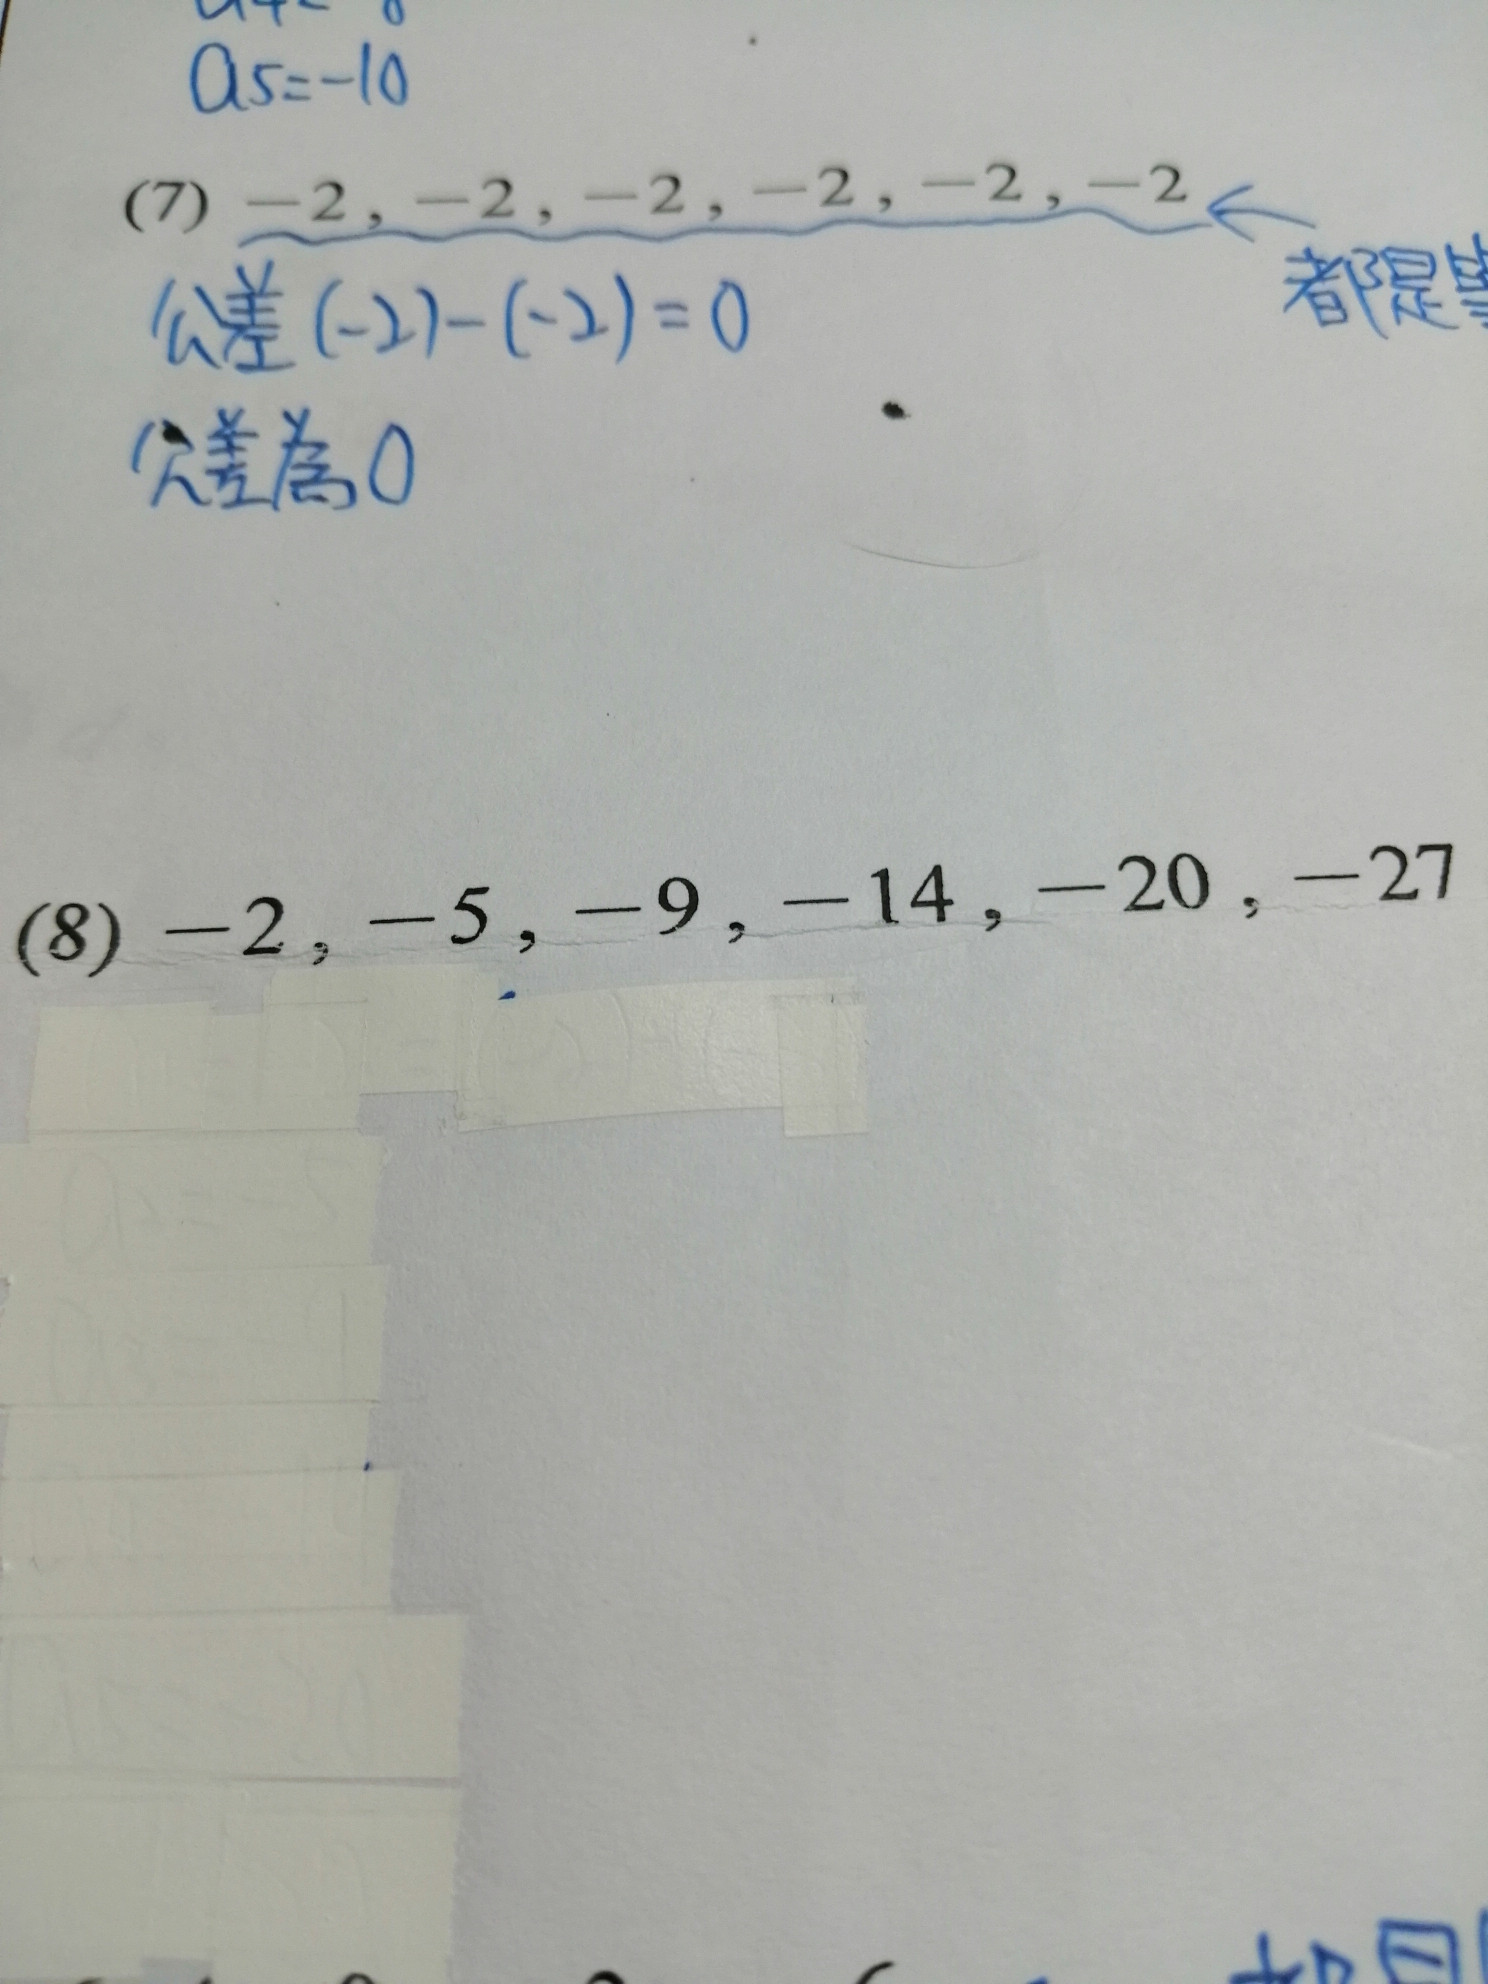 a5=-10
(7) －2, －2, －2, －2, －2, －2 ←
都是
公差(-2)-(-2)=0
公差為0
(8) －2, －5, －9, －14, －20, －27